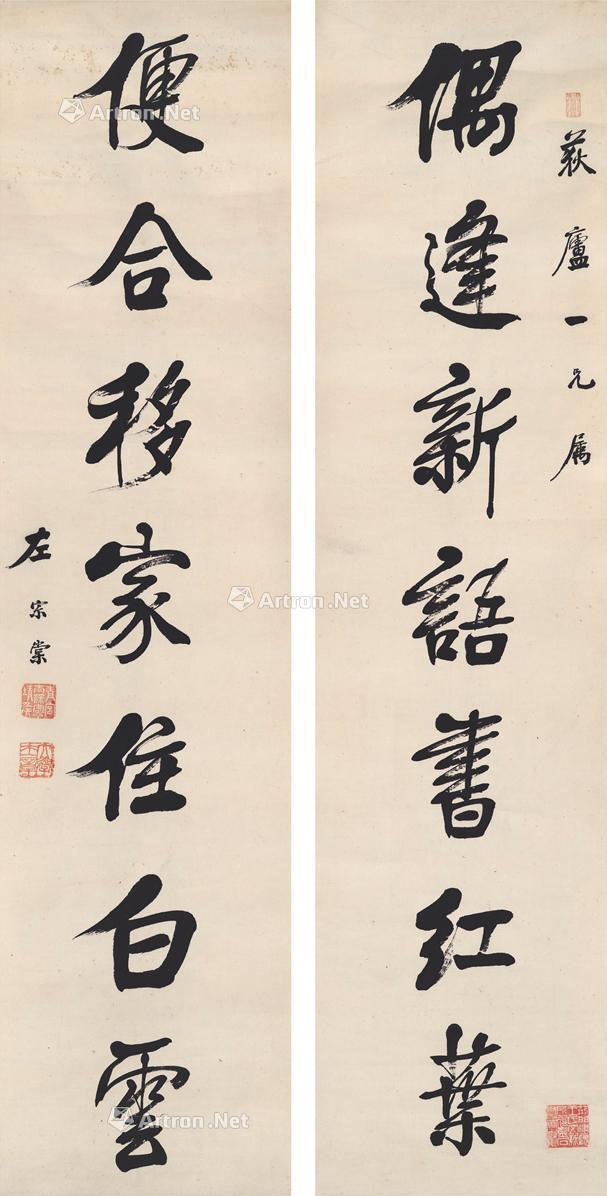 荻廬一兄属
偶逢新語書紅葉
便合移家住白雲
左宗棠
Artron.Net
Artron.Net
Artron.Net